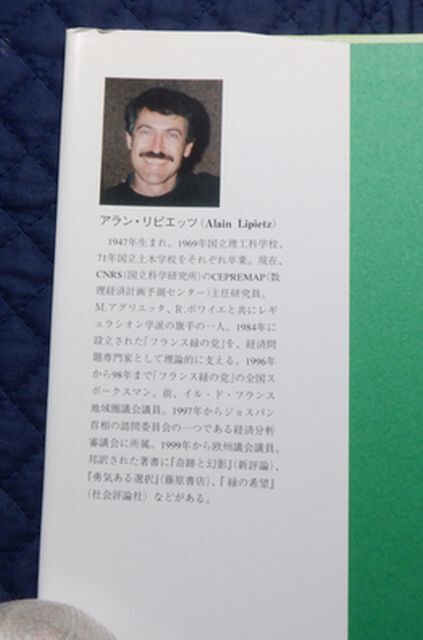 アラン・リピエッツ(Alain Lipietz)
1947年生まれ。1969年国立理工科学校、
71年国立土木学校をそれぞれ卒業。現在、
CNRS(国立科学研究所)のCEPREMAP(数
理経済計画予測センター)主任研究員。
M.アグリエッタ、R.ボワイエと共にレギ
ュラシオン学派の旗手の一人。1984年に
設立された『フランス緑の党』を、経済問
題専門家として理論的に支える。1996年
から98年まで『フランス緑の党』の全国ス
ポークスマン。前、イル・ド・フランス
地域圏議会議員。1997年からジョスパン
首相の諮問委員会の一つである経済分析
審議会に所属。1999年から欧州議会議員。
邦訳された著書に『奇跡と幻影』(新評論)、
『勇気ある選択』(藤原書店)、『緑の希望』
(社会評論社) などがある。